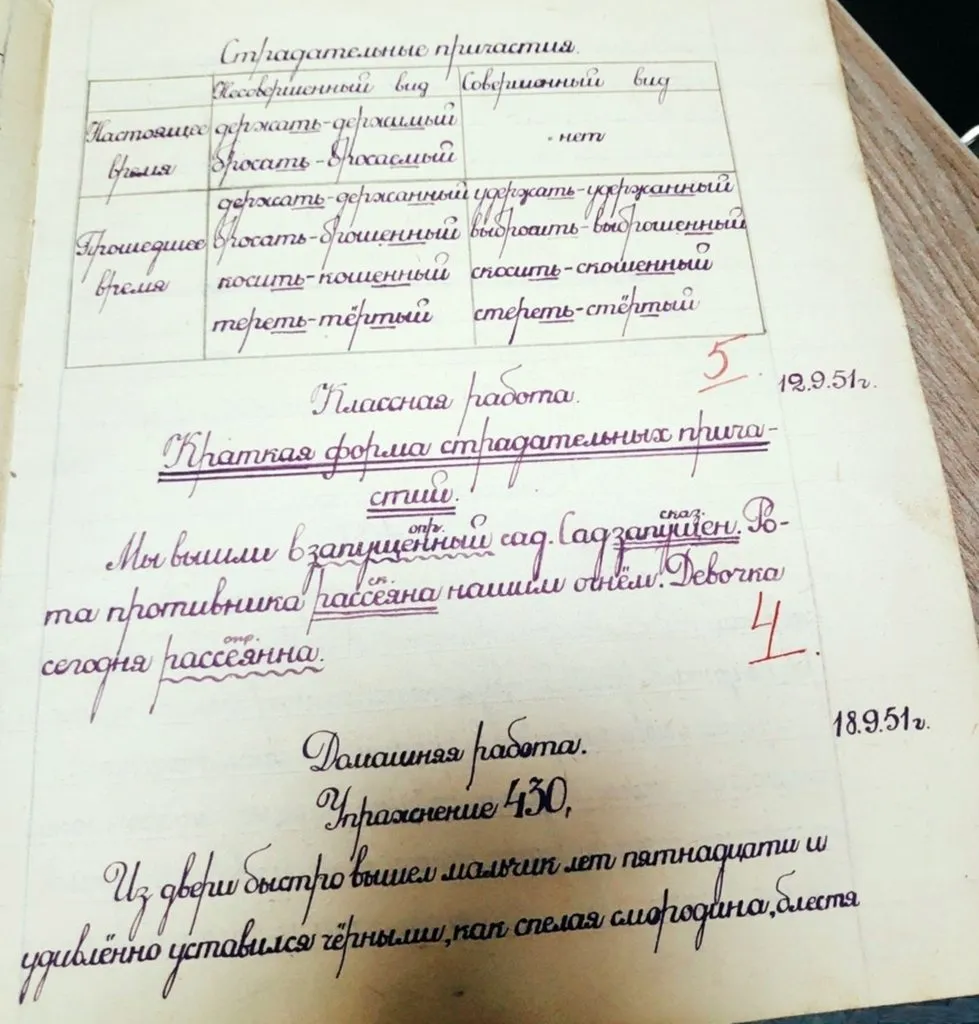 Страдательные причастия.
Несовершенный вид Совершенный вид
Настоящее время
держать-держимый
бросать-бросаемый
нет
Прошедшее время
держать-держанный удержать-удержанный
бросать-брошенный выбросить-выброшенный
косить-кошенный скосить-скошенный
тереть-тёртый стереть-стёртый
5
12.9.51г.
Классная работа.
Краткая форма страдательных прича-
стий.
опр. сказ.
Мы вышли в запущенный сад. Сад запущен. Ро-
ск.
та противника рассеяна нашим огнём. Девочка
опр.
сегодня рассеянна.
4
18.9.51г.
Домашняя работа.
Упражнение 430.
Из двери быстро вышел мальчик лет пятнадцати и
удивлённо уставился чёрными, как спелая смородина, блестя